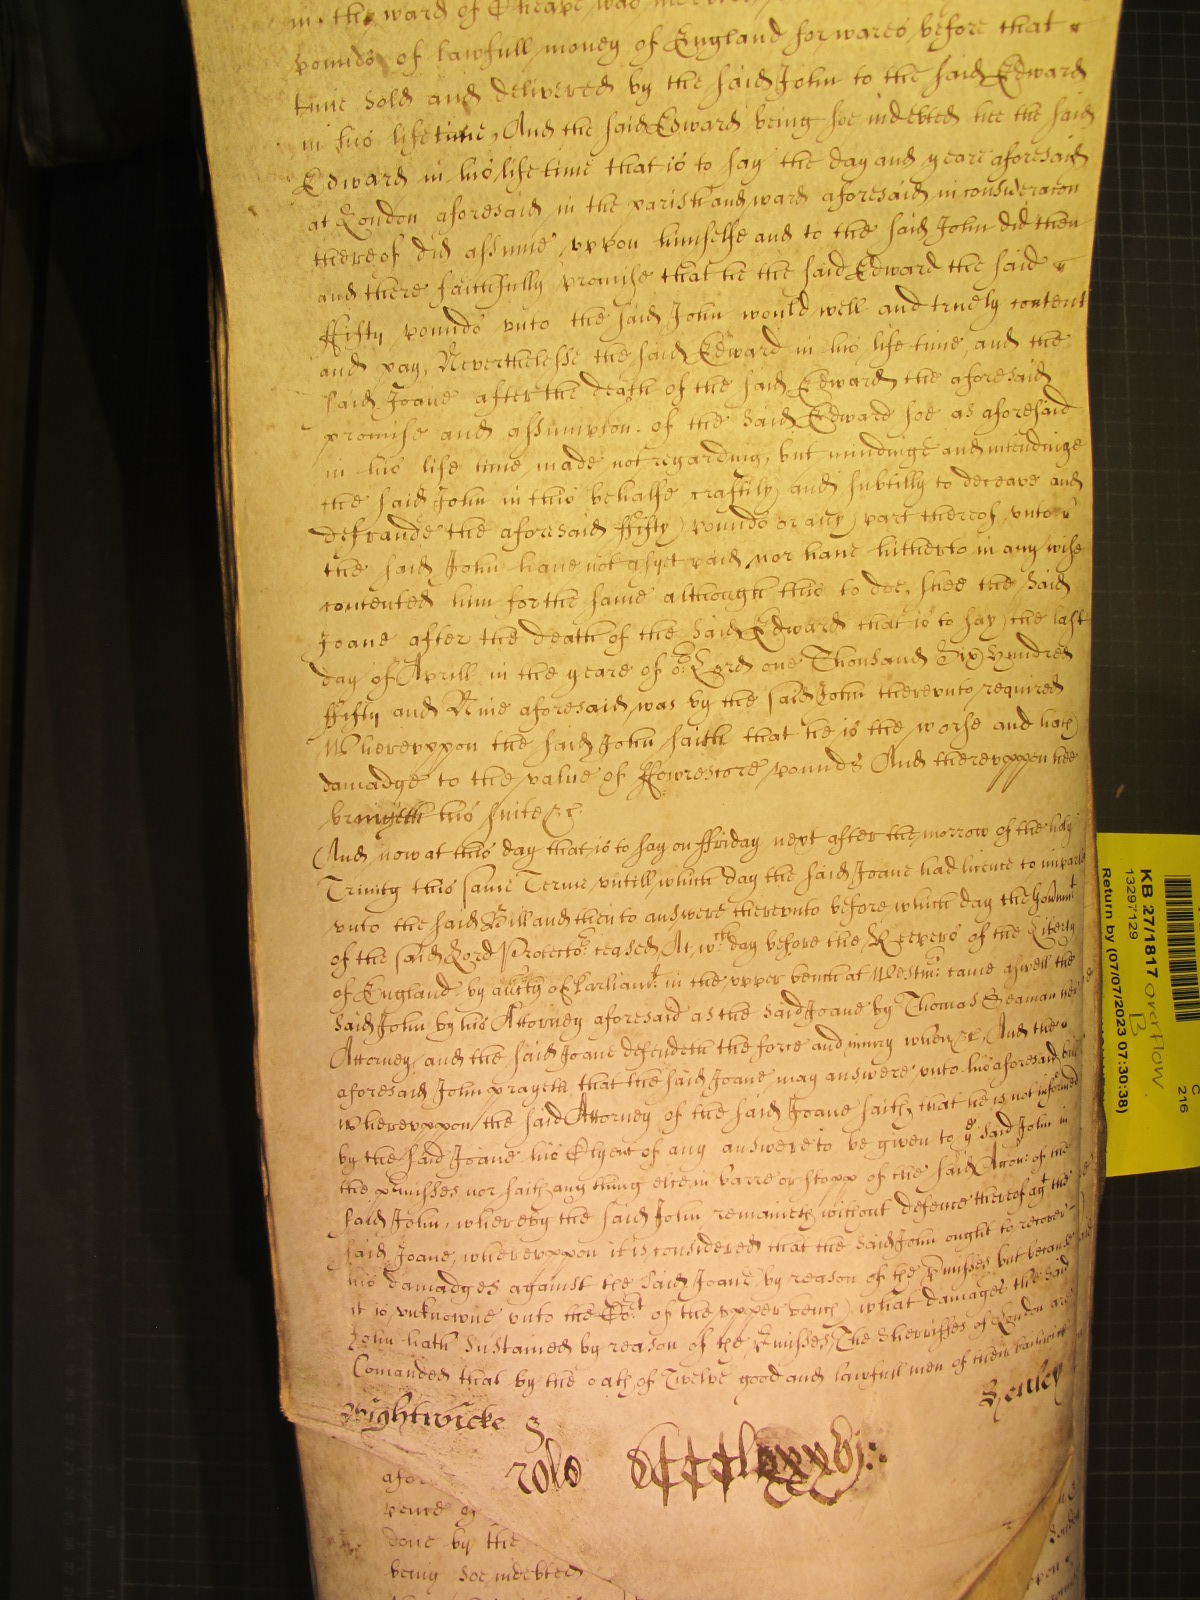 in the ward of Cheape was
pounds of lawfull money of England for wares before that
time sold and delivered by the said John to the said Edward
in his life time, And the said Edward being soe indebted hee the said
Edward in his life time that is to say the day and yeare aforesaid
at London aforesaid in the parish and ward aforesaid in consideracon
thereof did assume uppon himselfe and to the said John did then
and there faithfully promise that he the said Edward the said
ffifty pounds unto the said John would well and truely content
and pay, Neverthelesse the said Edward in his life time and the
said Joane after the death of the said Edward the aforesaid
promise and assumpcon of the said Edward soe as aforesaid
in his life time made not regarding, but mindinge and intendinge
the said John in this behalfe craftily and subtilly to deceave and
defraude the aforesaid ffifty pounds or any part thereof unto
the said John have not as yet paid nor have hitherto in any wise
contented him for the same although this to doe, shee the said
Joane after the death of the said Edward that is to say the last
day of Aprill in the yeare of or Lord one Thousand Six Hundred
ffifty and Nine aforesaid was by the said John thereunto required
Whereuppon the said John saith that he is the worse and hath
damadge to the value of ffowrescore pounds And thereuppon hee
bringeth this suite &c
And now at this day that is to say on ffriday next after the morrow of the holy
Trinity this same Terme, untill which day the said Joane had licence to imparle
unto the said Bill and then to answere thereunto before which day the Govmt
of the said Lord Protector ceased At wch day before the Keepers of the Liberty
of England by authty of Parliamt in the upper bench at Westmr came aswell the
said John by his Attorney aforesaid as the said Joane by Thomas Seaman her
Attorney, and the said Joane defendeth the force and iniury when &c, And the
aforesaid John prayeth that the said Joane may answere unto his aforesaid bill
Whereuppon the said Attorney of the said Joane saith, that he is not informed
by the said Joane his Clyent of any answere to be given to ye said John in
the pmisses nor saith any thing else in barre or stopp of the said Accon of the
said John, whereby the said John remaineth without defence thereof agt the
said Joane, whereuppon it is considered that the said John ought to recover
his damadges against the said Joane by reason of the pmisses but because
it is unknowne unto the Cort of the upper bench what damages the said
John hath sustained by reason of the pmisses, The Sherriffes of London are
Comanded that by the oath of Twelve good and lawfull men of their bailiwick
Wightwicke S Henley
rolo
afor
pence of
done by the
being soe indebted
KB 27/1817
overflow
B
13297129
Return by (07/07/2023 07:30:38)
C
216